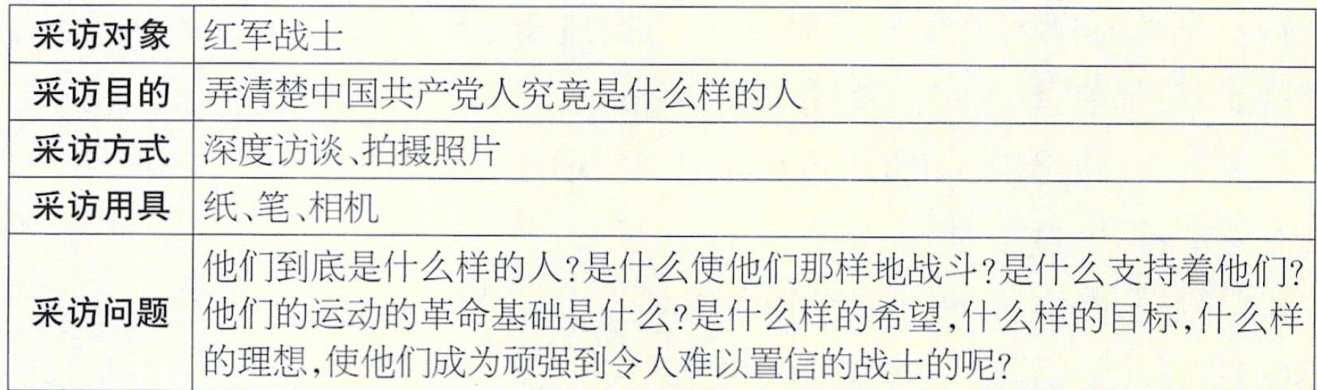 采访对象 红军战士
采访目的 弄清楚中国共产党人究竟是什么样的人
采访方式 深度访谈、拍摄照片
采访用具 纸、笔、相机
采访问题 他们到底是什么样的人?是什么使他们那样地战斗?是什么支持着他们?
他们的运动的革命基础是什么?是什么样的希望,什么样的目标,什么样
的理想,使他们成为顽强到令人难以置信的战士的呢?